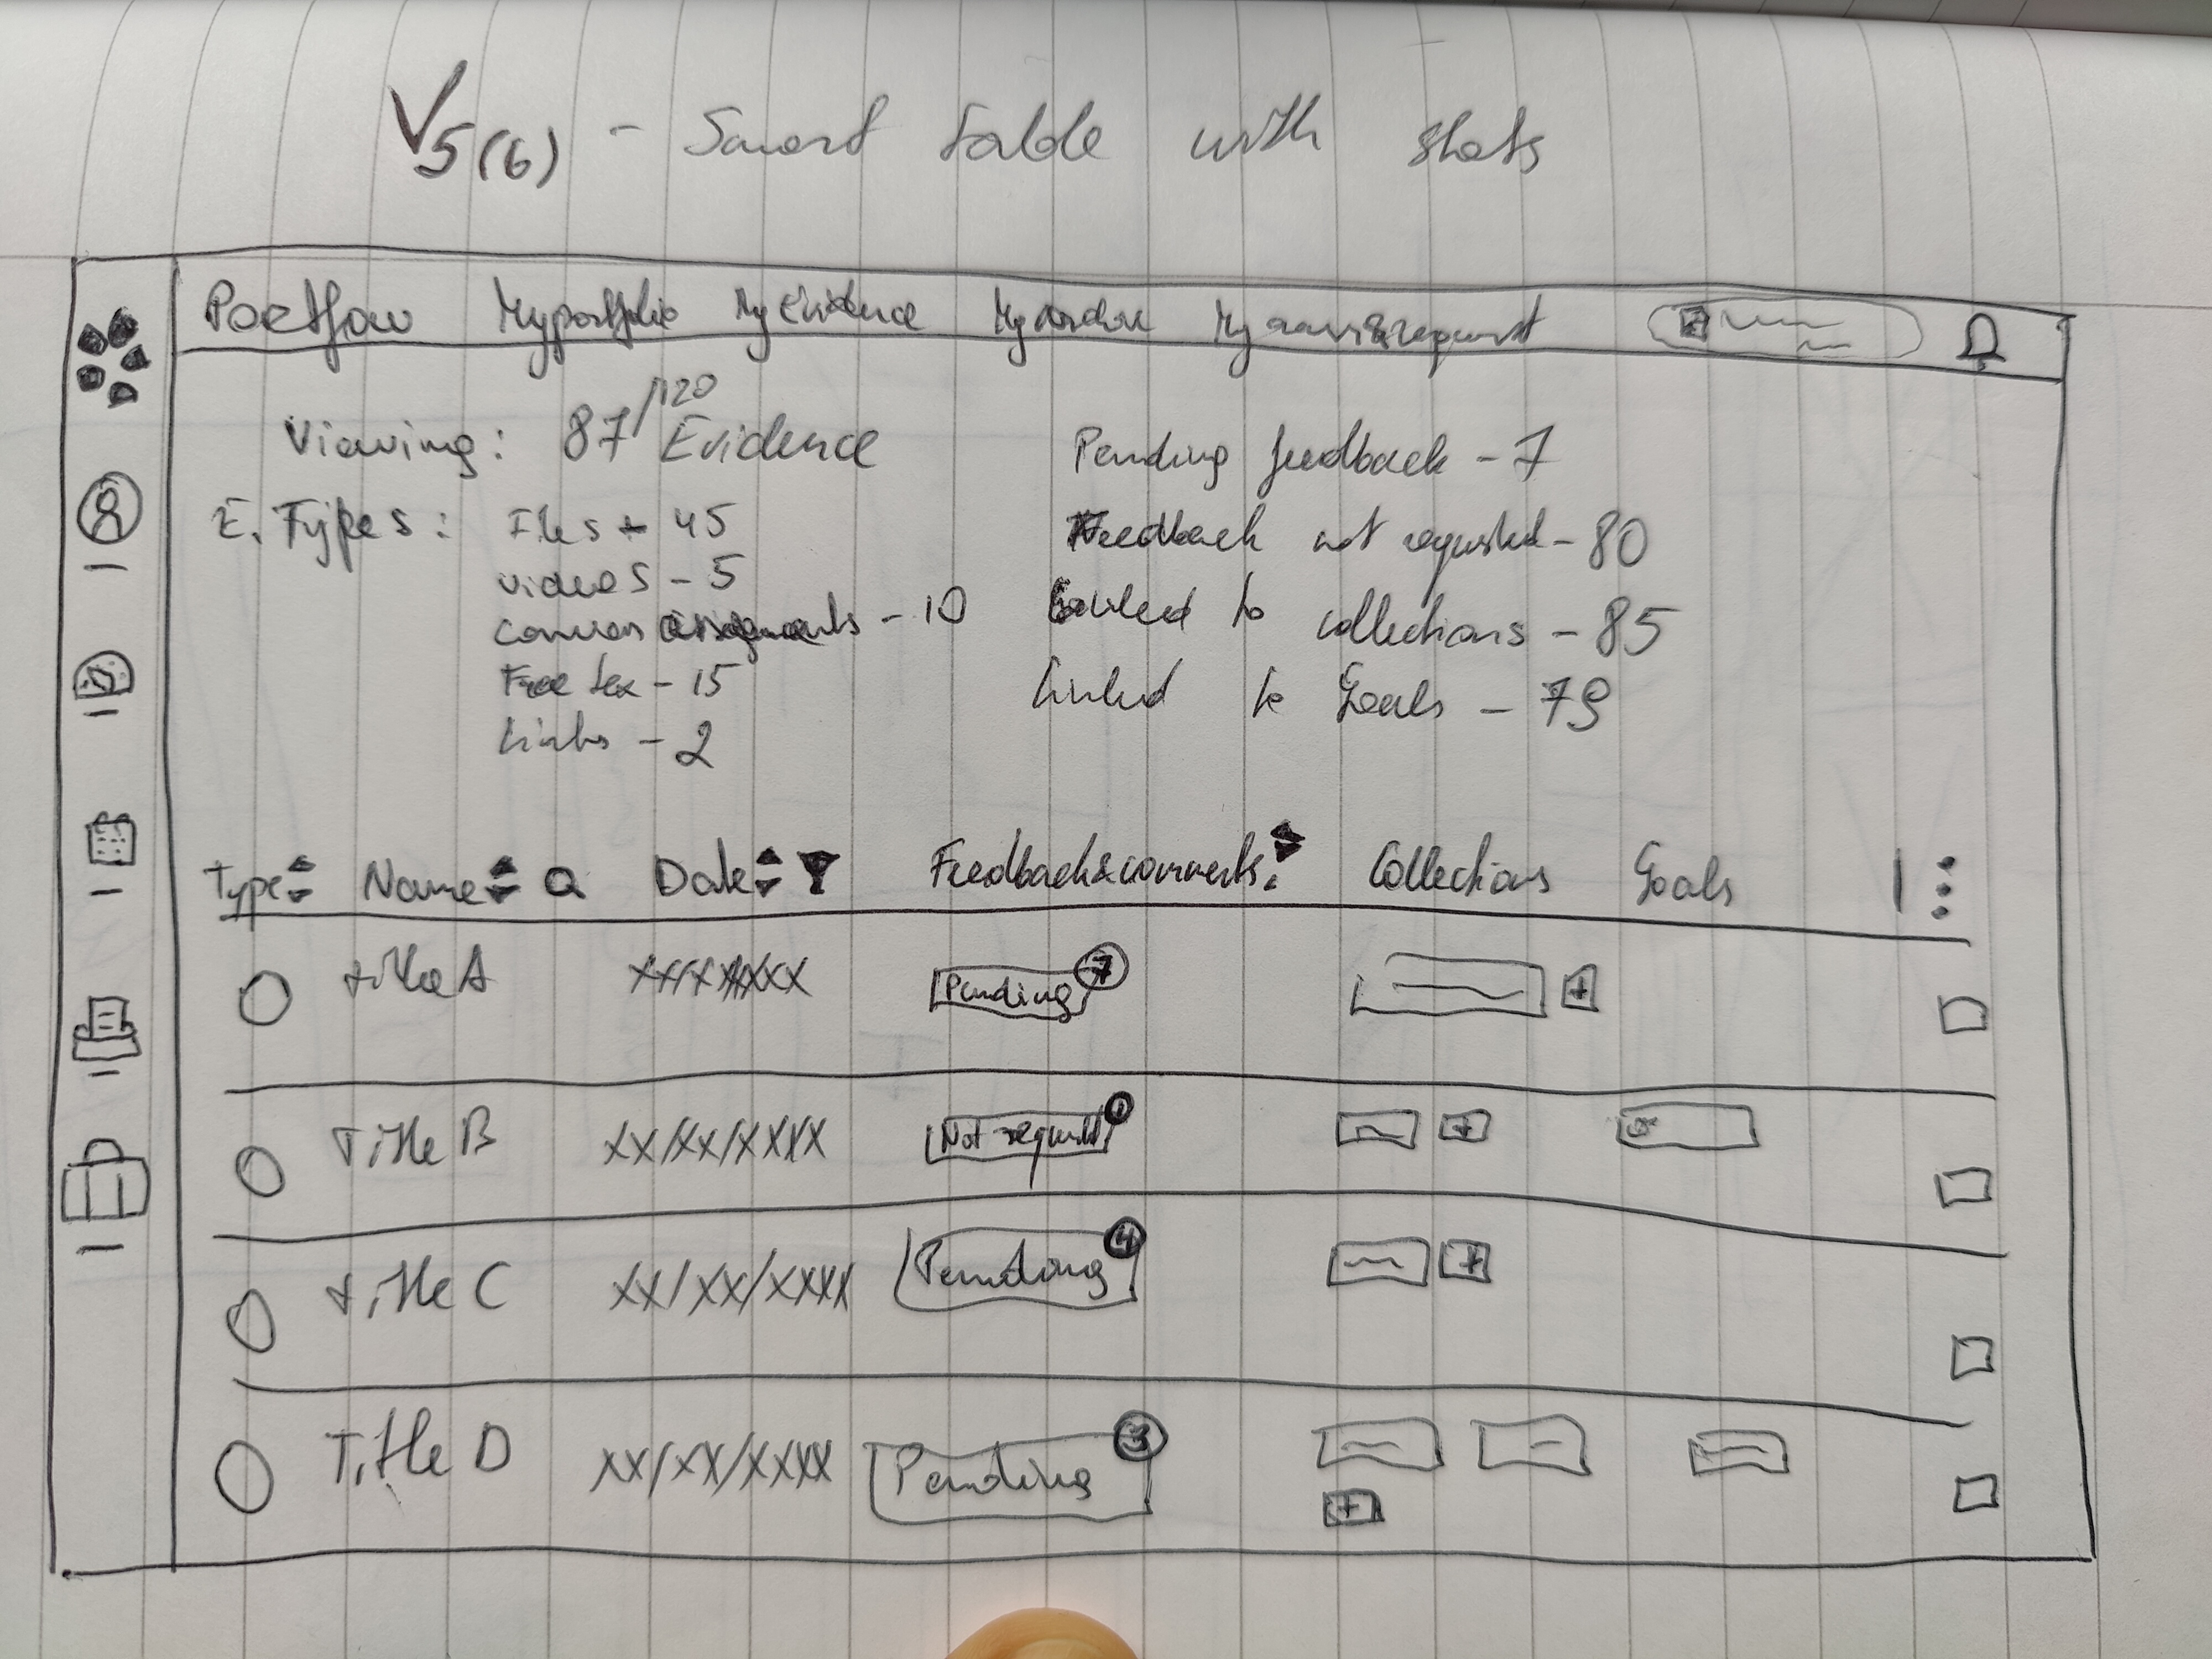 V5(6) - Smart table with stats
Portflow My portfolio My Evidence My
Viewing: 87/120 Evidence
E. Types: Files - 45
videos - 5
canvas assignments - 10
Free tex - 15
Links - 2
Pending feedback - 7
Feedback not requested - 80
Linked to collections - 85
Linked to Goals - 79
Type Name Date Feedback & comments Collections Goals
title A xx/xx/xxxx Pending 7 +
Title B xx/xx/xxxx Not request 1 +
title C xx/xx/xxxx Pending 4 +
Title D xx/xx/xxxx Pending 3
+